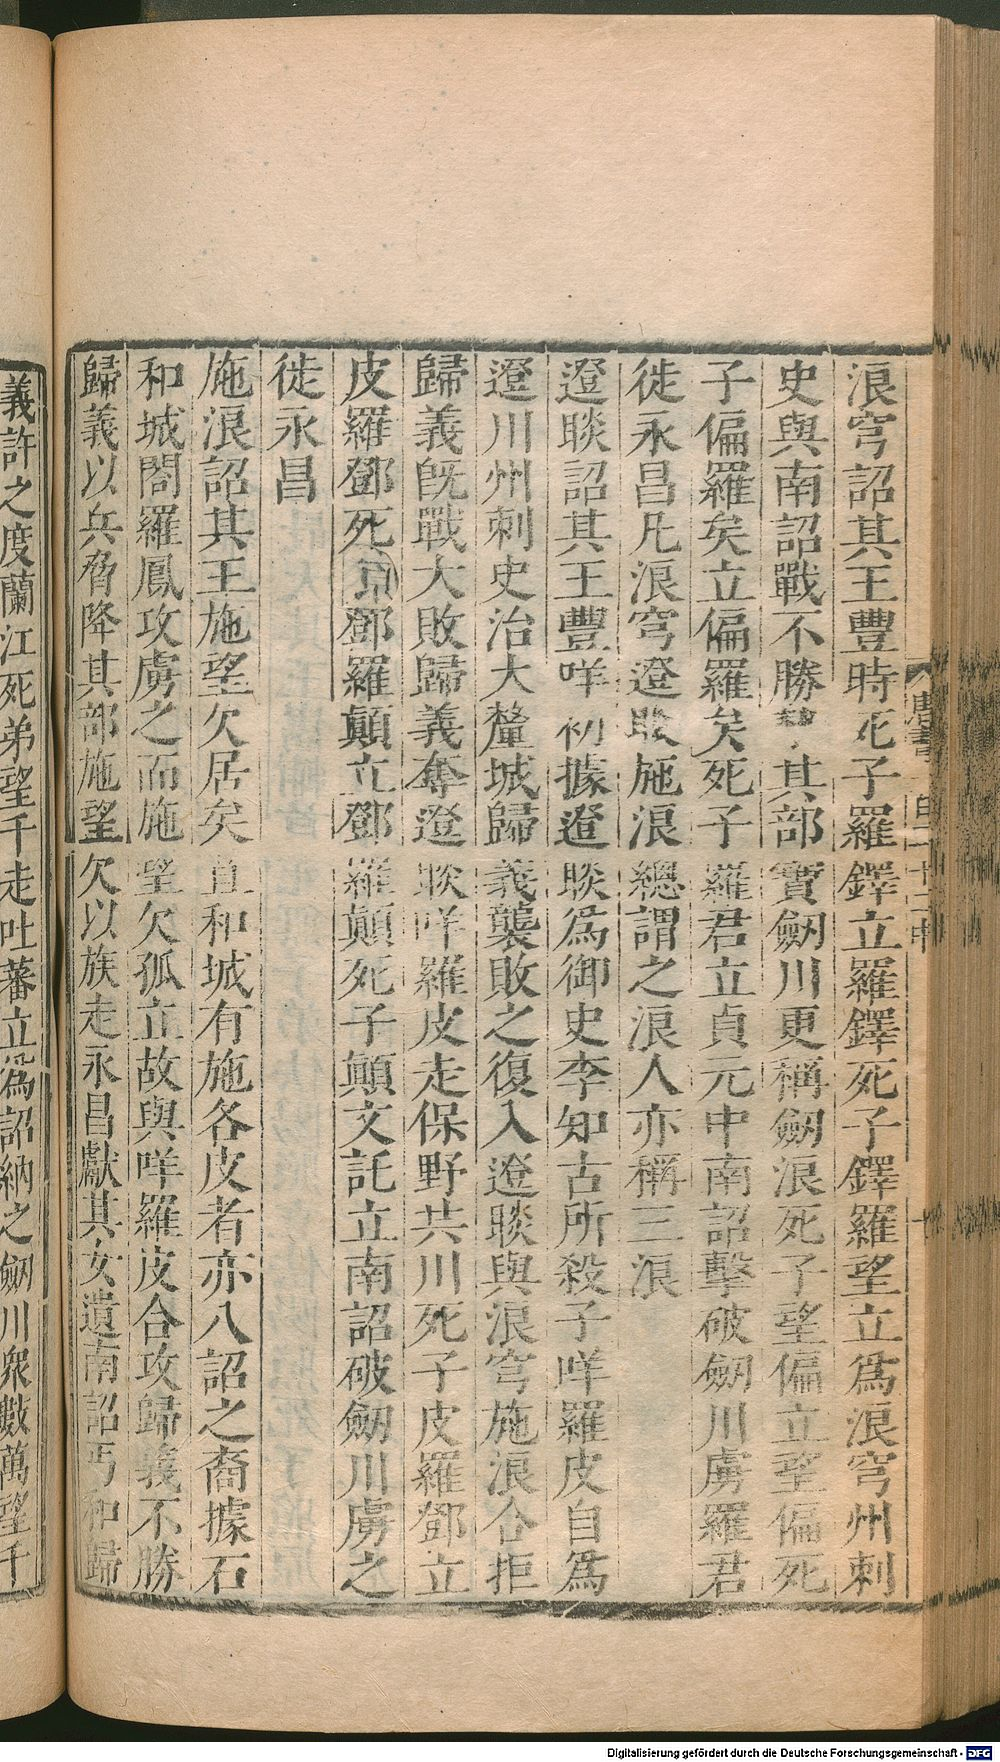 浪穹詔其王豐時死子羅鐸立羅鐸死子鐸羅望立爲浪穹州刺
史與南詔戰不勝其部實劒川更稱劒浪死子望偏立望偏死
子偏羅矣立偏羅矣死子羅君立貞元中南詔擊破劒川虜羅君
徙永昌凡浪穹邆睒施浪總謂之浪人亦稱三浪
邆睒詔其王豐咩初據邆睒爲御史李知古所殺子咩羅皮自爲
邆川州刺史治大釐城歸義襲敗之復入邆睒與浪穹施浪合拒
歸義旣戰大敗歸義奪邆睒咩羅皮走保野共川死子皮羅鄧立
皮羅鄧死子鄧羅顛立鄧羅顛死子顛文託立南詔破劒川虜之
徙永昌
施浪詔其王施望欠居矣苴和城有施各皮者亦八詔之裔據石
和城閤羅鳳攻虜之而施望欠孤立故與咩羅皮合攻歸義不勝
歸義以兵脅降其部施望欠以族走永昌獻其女遺南詔丐和歸
義許之度蘭江死弟望千走吐蕃立爲詔納之劒川衆數萬望千
唐書 百二十二中
Digitalisierung gefördert durch die Deutsche Forschungsgemeinschaft - DFG